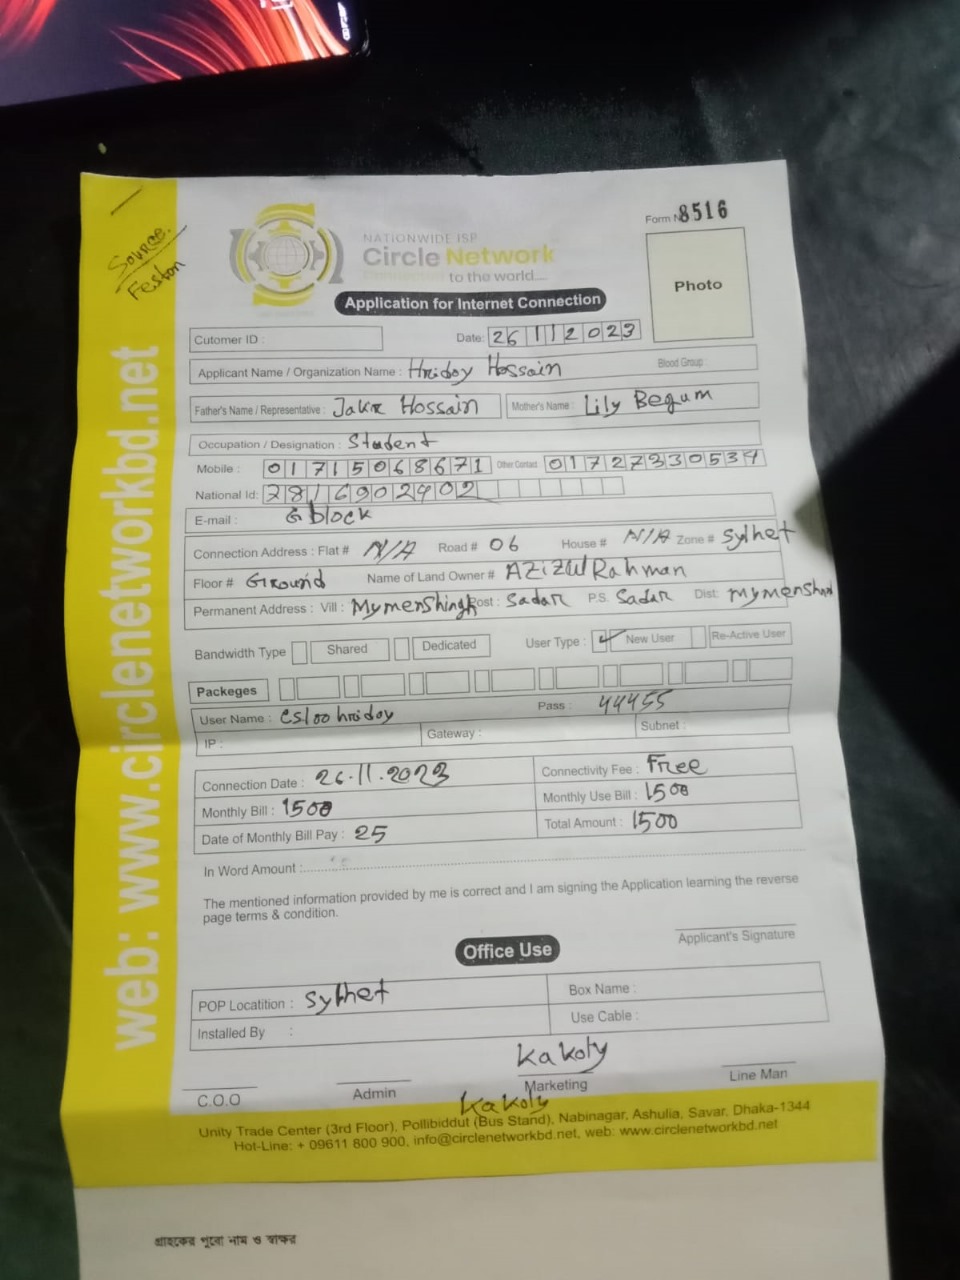 Form N 8516
Source.
Feston
NATIONWIDE ISP
Circle Network
to the world....
Photo
Application for Internet Connection
Cutomer ID :
Date: 26 11 2023
Applicant Name / Organization Name : Hridoy Hossain Blood Group :
Father's Name / Representative : Jakir Hossain Mother's Name : Lily Begum
Occupation / Designation : Student
Mobile : 01715068671 Other Contact 01727330534
National Id: 2816902402
E-mail : G block
Connection Address : Flat # N/A Road # 06 House # N/A Zone # Sylhet
Floor # Ground Name of Land Owner # AZizul Rahman
Permanent Address : Vill : Mymenshingh Post : Sadar P.S. Sadar Dist:
Bandwidth Type Shared Dedicated User Type : New User Re-Active User
Packeges
User Name : Pass : 44455
IP : Gateway : Subnet :
Connection Date : 26.11.2023 Connectivity Fee : Free
Monthly Bill : 1500 Monthly Use Bill : 1500
Date of Monthly Bill Pay : 25 Total Amount : 1500
In Word Amount :
The mentioned information provided by me is correct and I am signing the Application learning the reverse
page terms & condition.
Applicant's Signature
Office Use
POP Locatition : Sylhet Box Name :
Installed By : Use Cable :
Kakoly
C.O.O Admin Marketing Line Man
Kakoly
Unity Trade Center (3rd Floor), Pollibiddut (Bus Stand), Nabinagar, Ashulia, Savar, Dhaka-1344
Hot-Line: + 09611 800 900, info@circlenetworkbd.net, web: www.circlenetworkbd.net
web: www.circlenetworkbd.net
গ্রাহকের পুরো নাম ও স্বাক্ষর